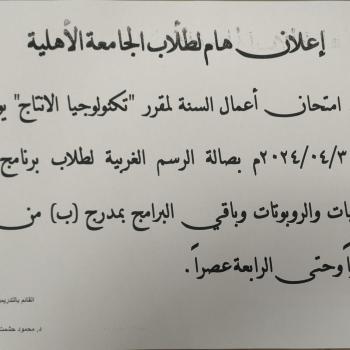 إعلان هام لطلاب الجامعة الأهلية
امتحان أعمال السنة لمقرر "تكنولوجيا الانتاج"
٢٠٢٤/٠٤/٣ م بصالة الرسم الغربية لطلاب برنامج
والروبوتات وباقي البرامج بمدرج (ب) من
وحتى الرابعة عصراً.
القائم بالتدريس
د. محمود حشمت